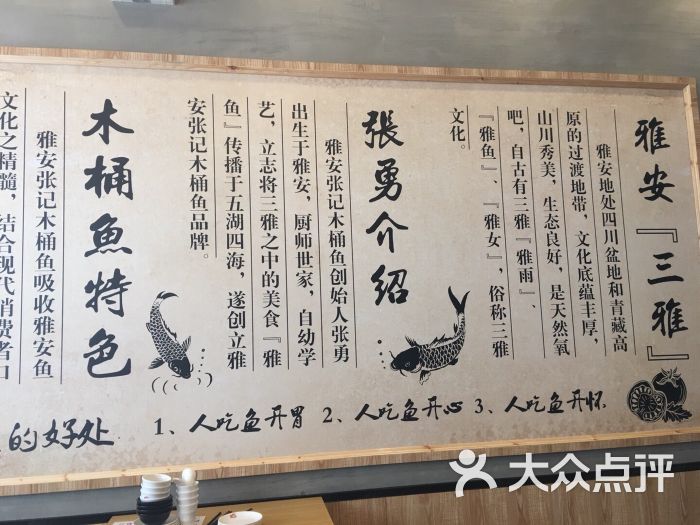 雅安『三雅』
雅安地处四川盆地和青藏高
原的过渡地带，文化底蕴丰厚，
山川秀美，生态良好，是天然氧
吧，自古有三雅『雅雨』、
『雅鱼』、『雅女』，俗称三雅
文化。
張勇介绍
雅安张记木桶鱼创始人张勇
出生于雅安，厨师世家，自幼学
艺，立志将三雅之中的美食『雅
鱼』传播于五湖四海，遂创立雅
安张记木桶鱼品牌。
木桶魚特色
雅安张记木桶鱼吸收雅安鱼
文化之精髓，结合现代消费者口
的好处
1、人吃鱼开胃 2、人吃鱼开心 3、人吃鱼开怀
大众点评